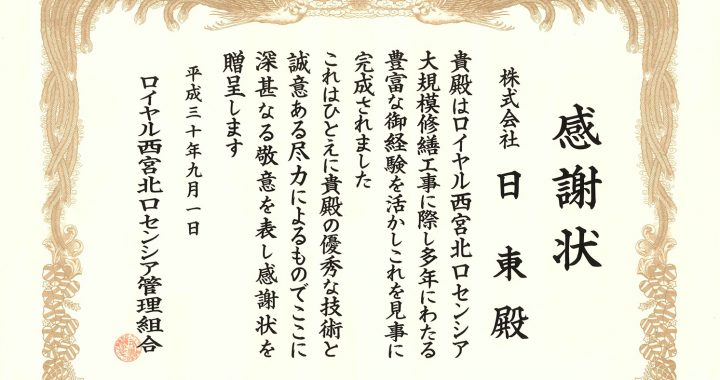 感謝状
株式会社 日東殿
貴殿はロイヤル西宮北口センシア
大規模修繕工事に際し多年にわたる
豊富な御経験を活かしこれを見事に
完成されました
これはひとえに貴殿の優秀な技術と
誠意ある尽力によるものでここに
深甚なる敬意を表し感謝状を
贈呈します
平成三十年九月一日
ロイヤル西宮北口センシア管理組合